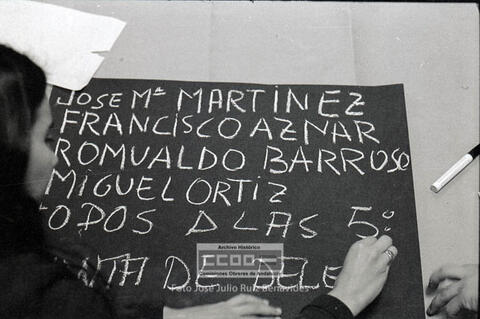 JOSE Mª MARTINEZ
FRANCISCO AZNAR
ROMUALDO BARROSO
MIGUEL ORTIZ
TODOS A LAS 5º
DE DELE
Archivo Histórico
CCOO A
Comisiones Obreras de Andalucía
Foto José Julio Ruiz Benavides